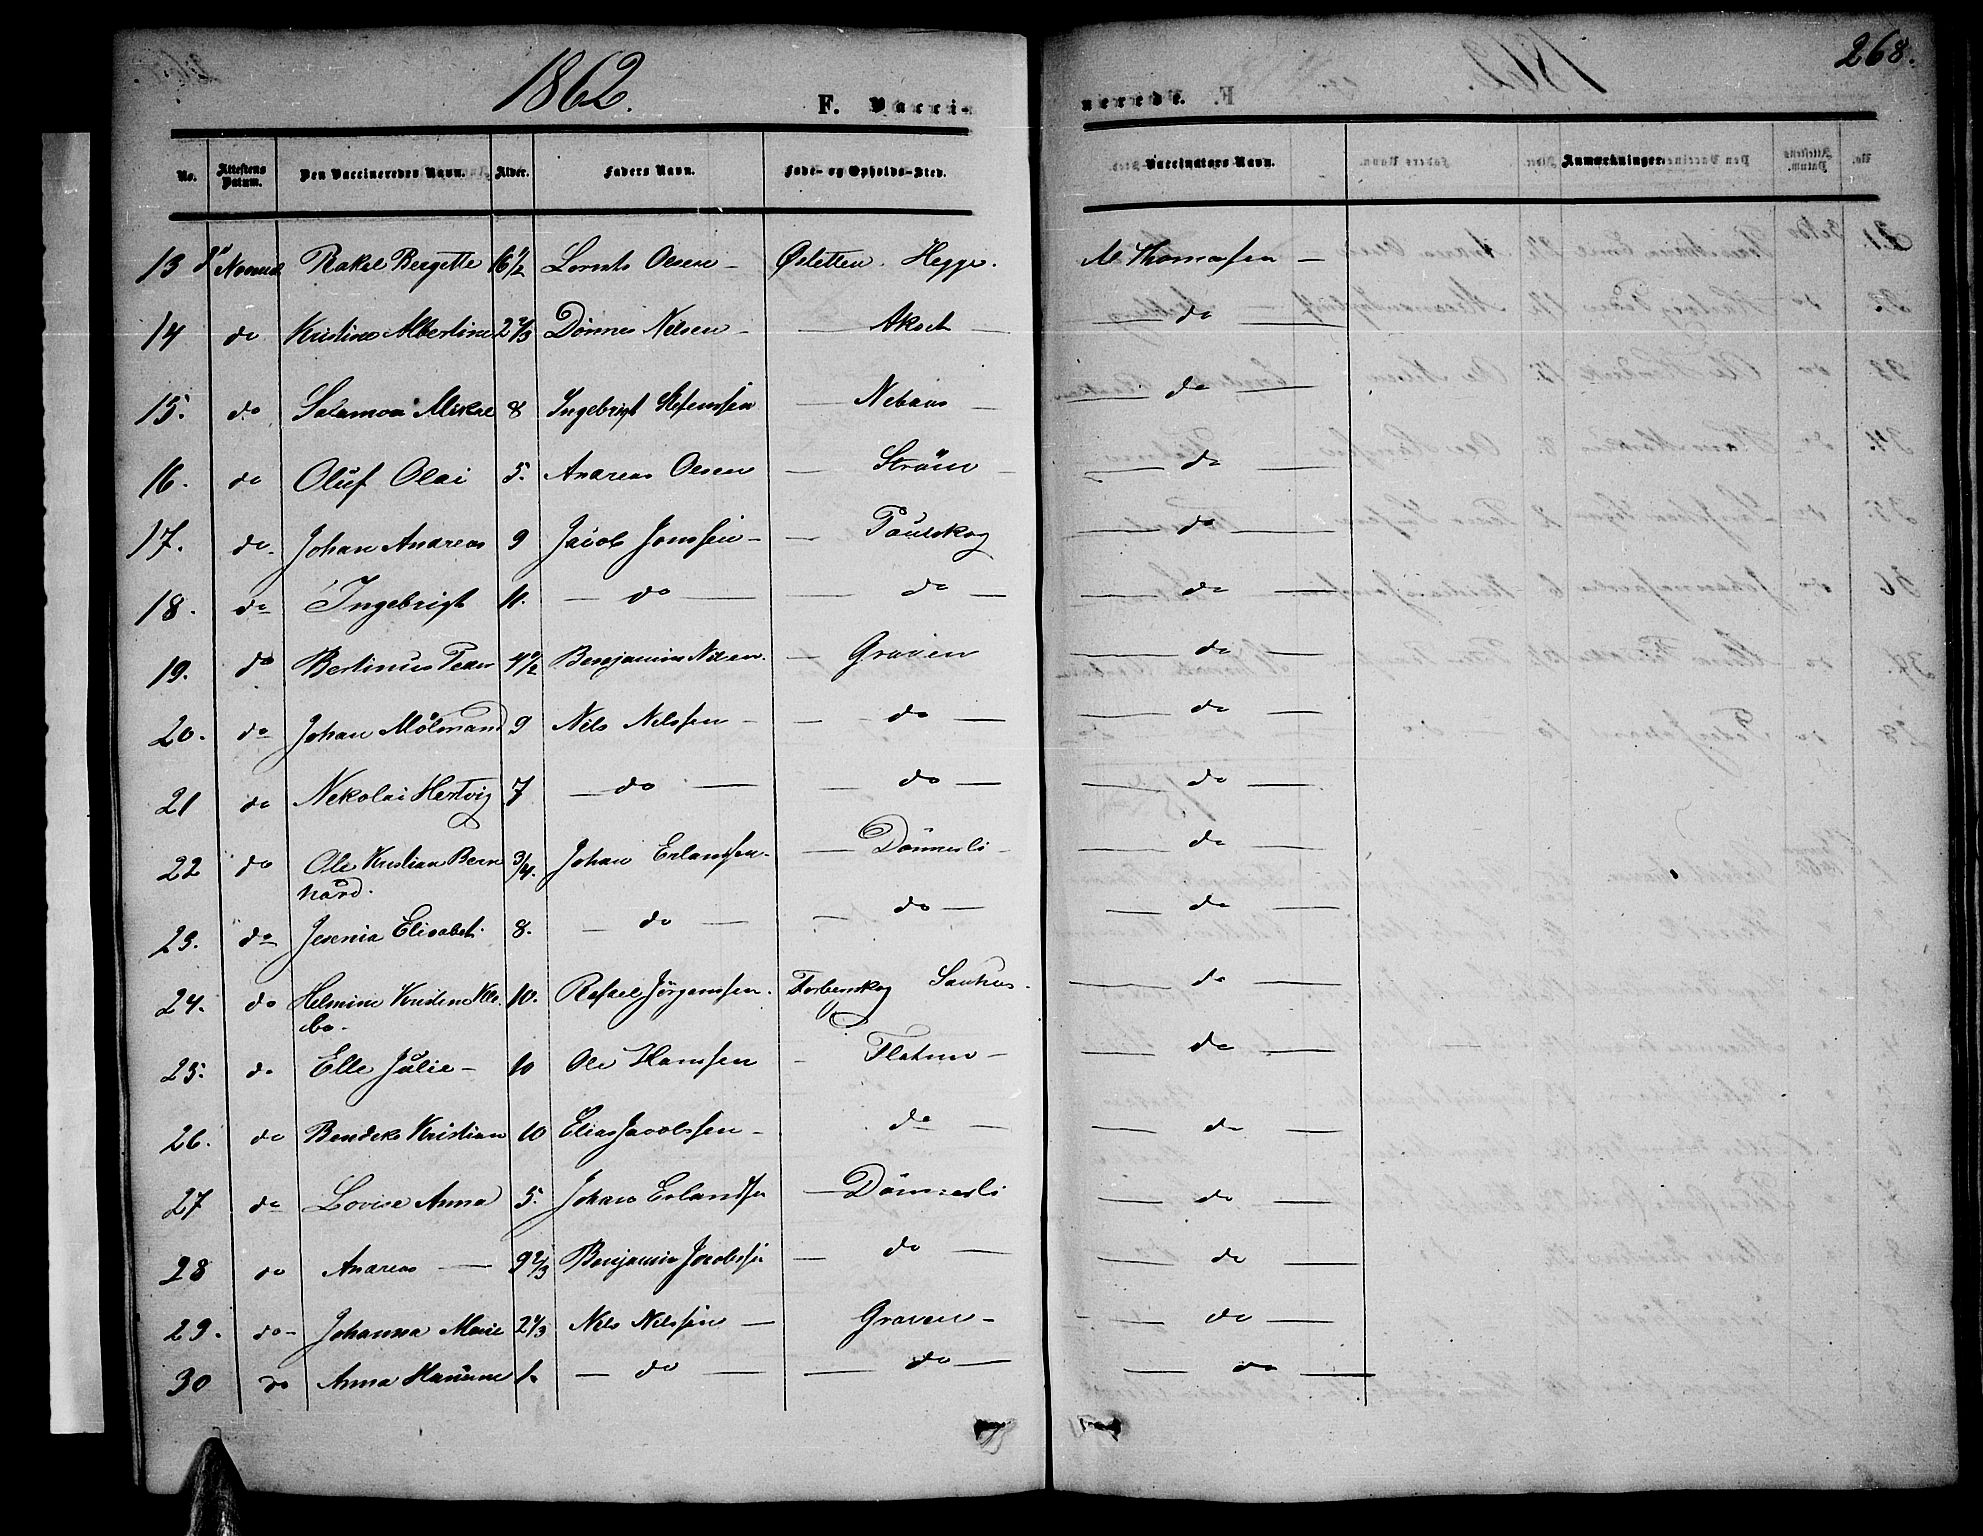 1862. F. Vacci- nerede. 268.
No. Attestens Datum. Den Vaccineredes Navn. Alder. Faders Navn. Føde- og Opholds-Sted. Vaccinators Navn. Anmærkninger.
13 Rakel Bergette 16 1/2 Lornts Olsen - Østetten. Hegge. M Thomassen -
14 do Kristine Albertine 2 2/3 Dønnes Nilsen - - Akset - - do -
15. do Salamon Mikal 8 Ingebrigt Stefenssen Nebaas - - do -
16. do Oluf Olai 5. Andreas Olsen - Ström - - do -
17. do. Johan Andreas 9 Jacob Jonssen - - Paulskog - do -
18. do Ingebrigt 11. - do - - do - - do -
19. do Bertinus Peder 4 1/2 Benjamin Nilsen. - Graven - do -
20. do Johan Mölmand 9 Nils Nilssen - - do - - do -
21 do Nekolai Hertvig 7 - do - - do - - do -
22 do Ole Kristian Bern 3/4. Johan Erlandsen. - Dönnesli - - do -
hard.
23. do Jesenia Elisabet. 8. - do - - do - - do -
24. do Helmine Kristine Kle. 10. Rafael Jörgenssen. Torberskog Sauhus. - do -
bo.
25. do Elle Julie - 10 Ole Hanssen - Flatmo - - do -
26. do Bendeke Kristian 10 Elias Jacobssen - do - - do -
27 do Lovise Anna 5. Johan Erlandsen - Dönnesli - do -
28 do Andreas - 9 2/3 Benjamin Jacobssen - do - - do -
29. do - Johanna Marie 2 1/3 Nils Nilssen - Graven - - do -
30 do Anna Hanine 1. - do - - do - - do -